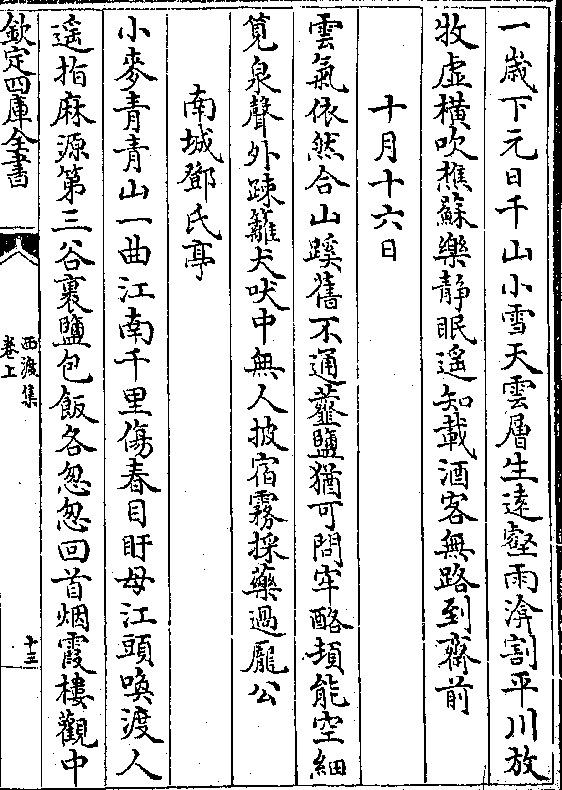 一歳下元日千山小雪天雲層生逺壑雨渰割平川放
牧虚横吹樵蘇樂静眠遥知載酒客無路到齋前
十月十六日
雲氣依然合山蹊舊不通虀鹽猶可問牢酪頓能空細
筧泉聲外踈籬犬吠中無人披宿霧採藥過龐公
南城鄧氏亭
小麥青青山一曲江南千里傷春目盱母江頭喚渡人
遥指麻源第三谷裹鹽包飯各怱怱回首烟霞樓觀中
欽定四庫全書
西渡集
卷上
十三